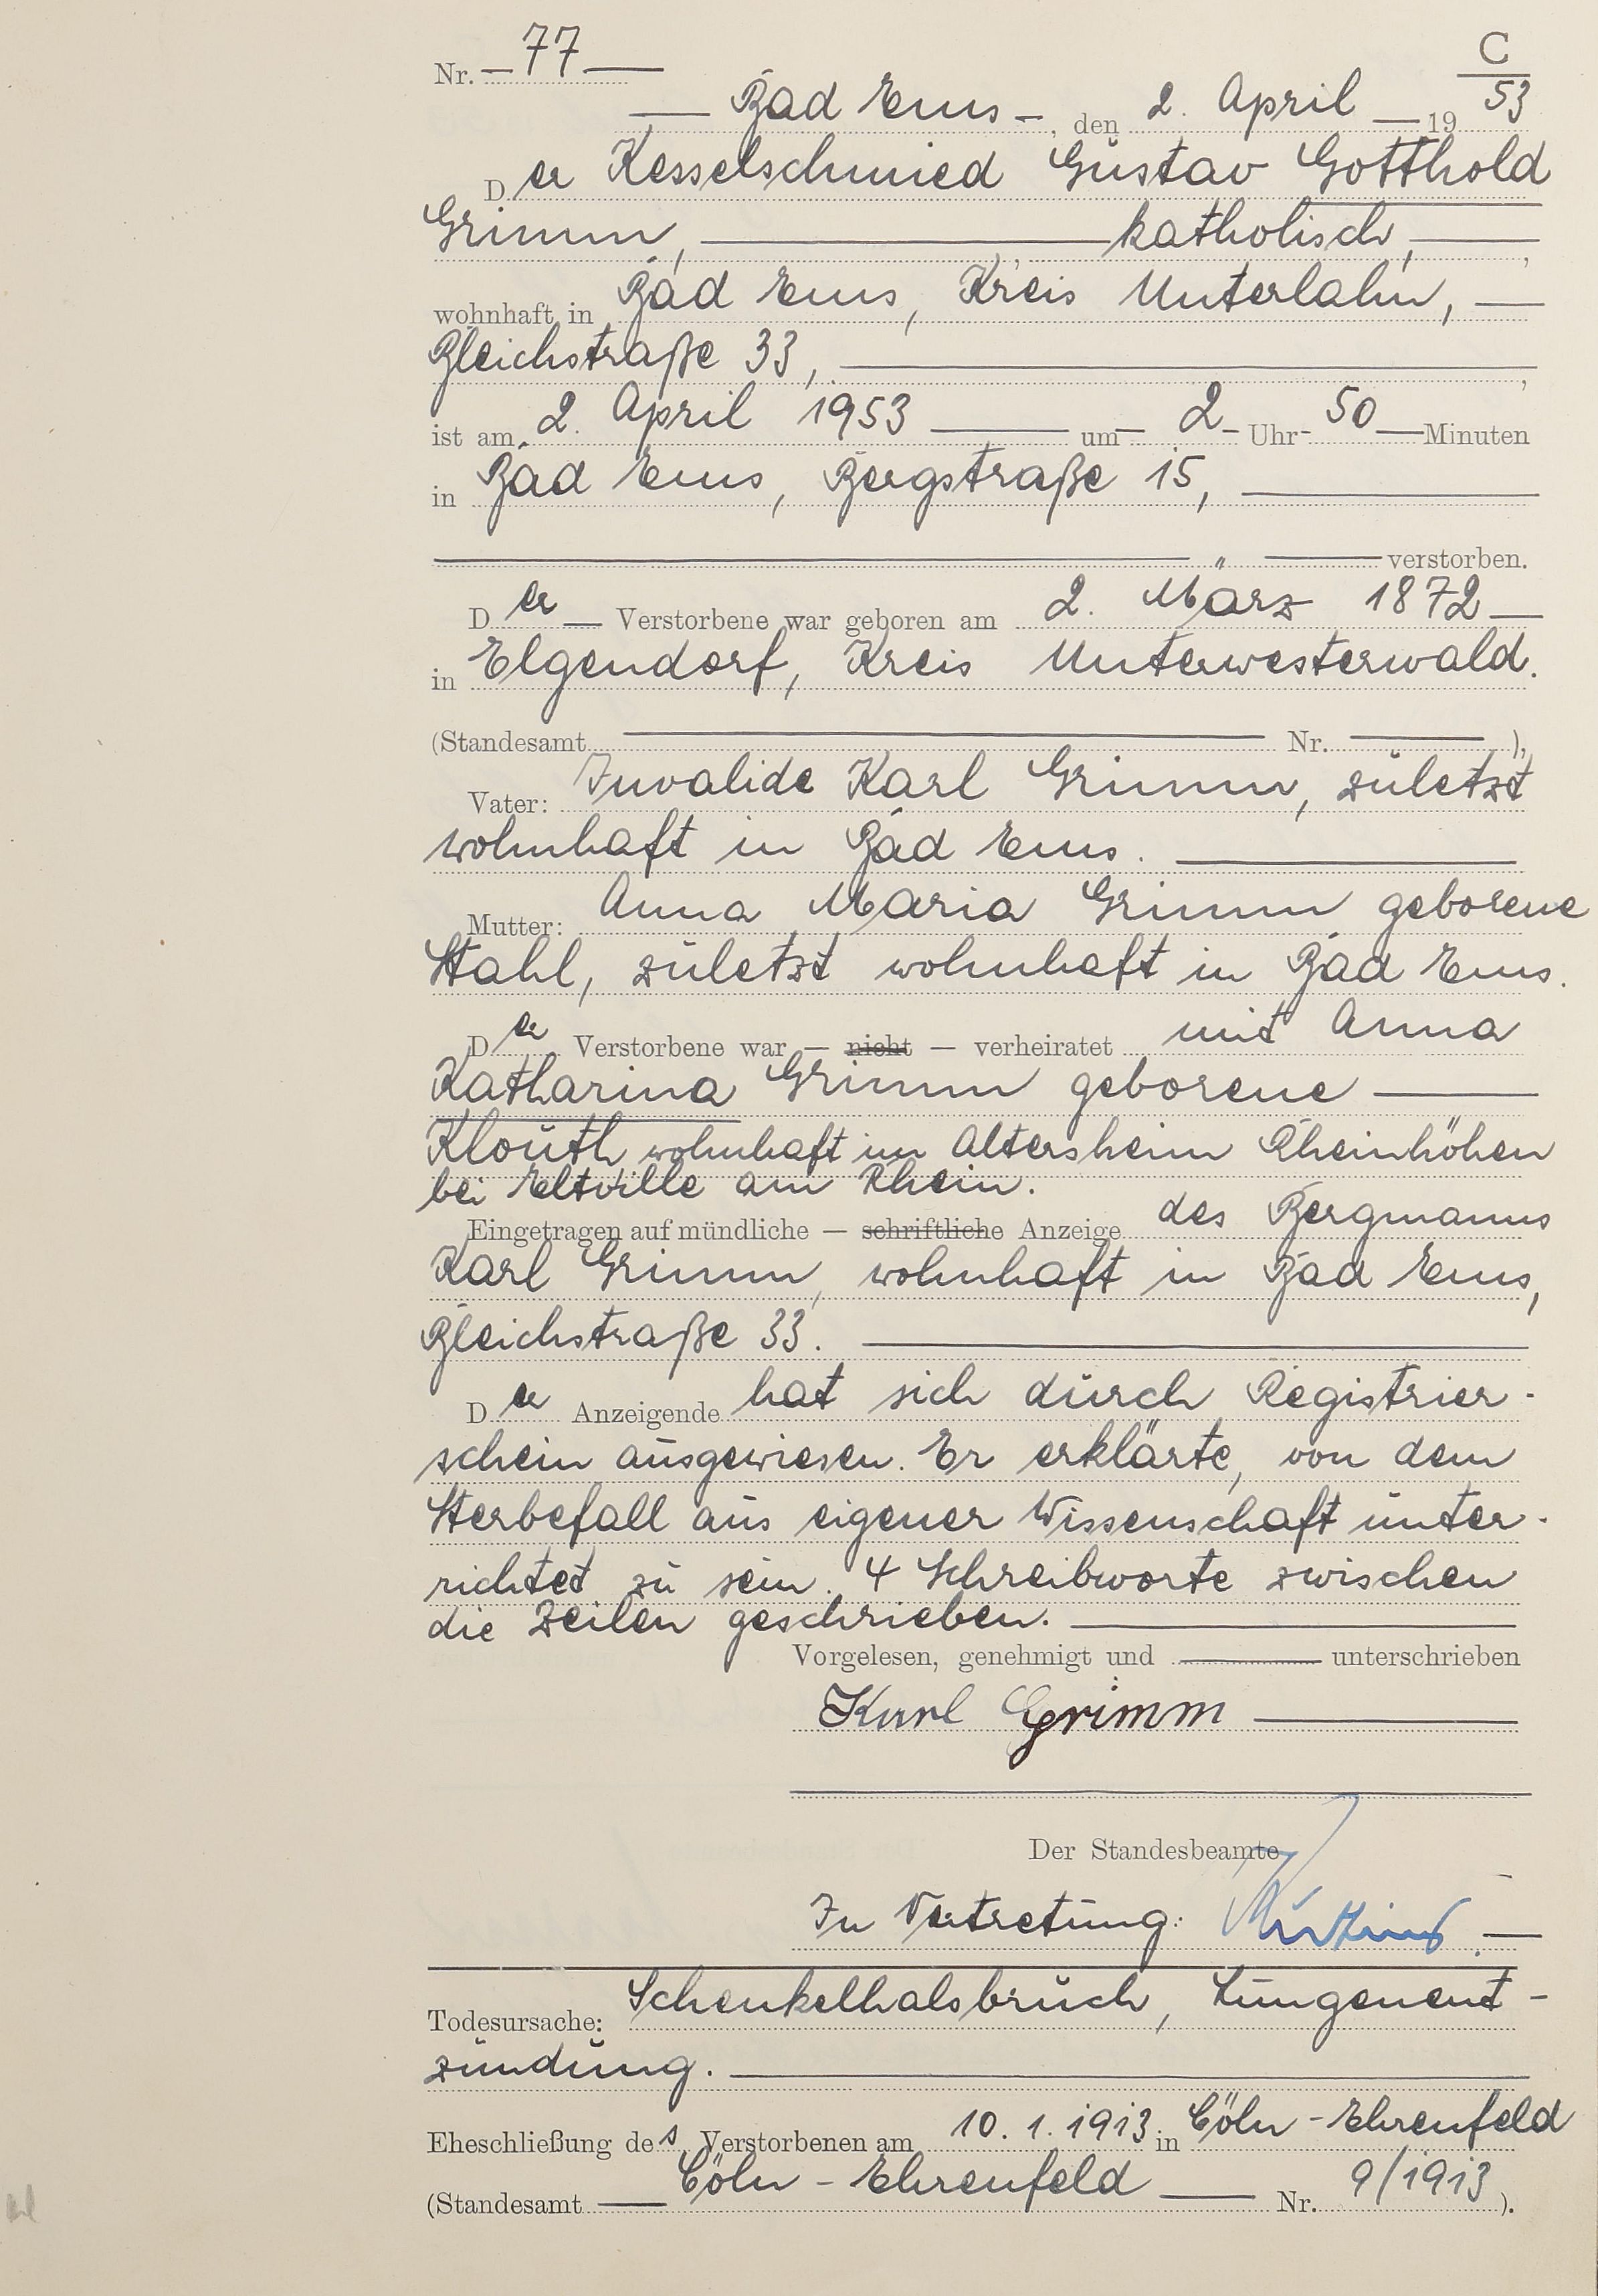 C
Nr. 77
Bad Ems, den 2. April 1953
Der Kesselschmied Gustav Gotthold
Grimm, katholisch,
wohnhaft in Bad Ems, Kreis Unterlahn,
Bleichstraße 33,
ist am 2. April 1953 um 2 Uhr 50 Minuten
in Bad Ems, Bergstraße 15,
verstorben.
Der Verstorbene war geboren am 2. März 1872
in Elgendorf, Kreis Unterwesterwald.
(Standesamt Nr. ),
Vater: Invalide Karl Grimm, zuletzt
wohnhaft in Bad Ems.
Mutter: Anna Maria Grimm geborene
Stahl, zuletzt wohnhaft in Bad Ems.
Der Verstorbene war — nicht — verheiratet mit Anna
Katharina Grimm geborene
Klouth wohnhaft im Altersheim Rheinhöhen
bei Eltville am Rhein.
Eingetragen auf mündliche — schriftliche Anzeige des Bergmanns
Karl Grimm, wohnhaft in Bad Ems,
Bleichstraße 33.
Der Anzeigende hat sich durch Registrier-
schein ausgewiesen. Er erklärte, von dem
Sterbefall aus eigener Wissenschaft unter-
richtet zu sein. 4 Schreibworte zwischen
die Zeilen geschrieben.
Vorgelesen, genehmigt und unterschrieben
Karl Grimm
Der Standesbeamte
In Vertretung:
Todesursache: Schenkelhalsbruch, Lungenent-
zündung.
Eheschließung des Verstorbenen am 10. 1. 1913 in Cöln-Ehrenfeld
(Standesamt Cöln-Ehrenfeld Nr. 9/1913).